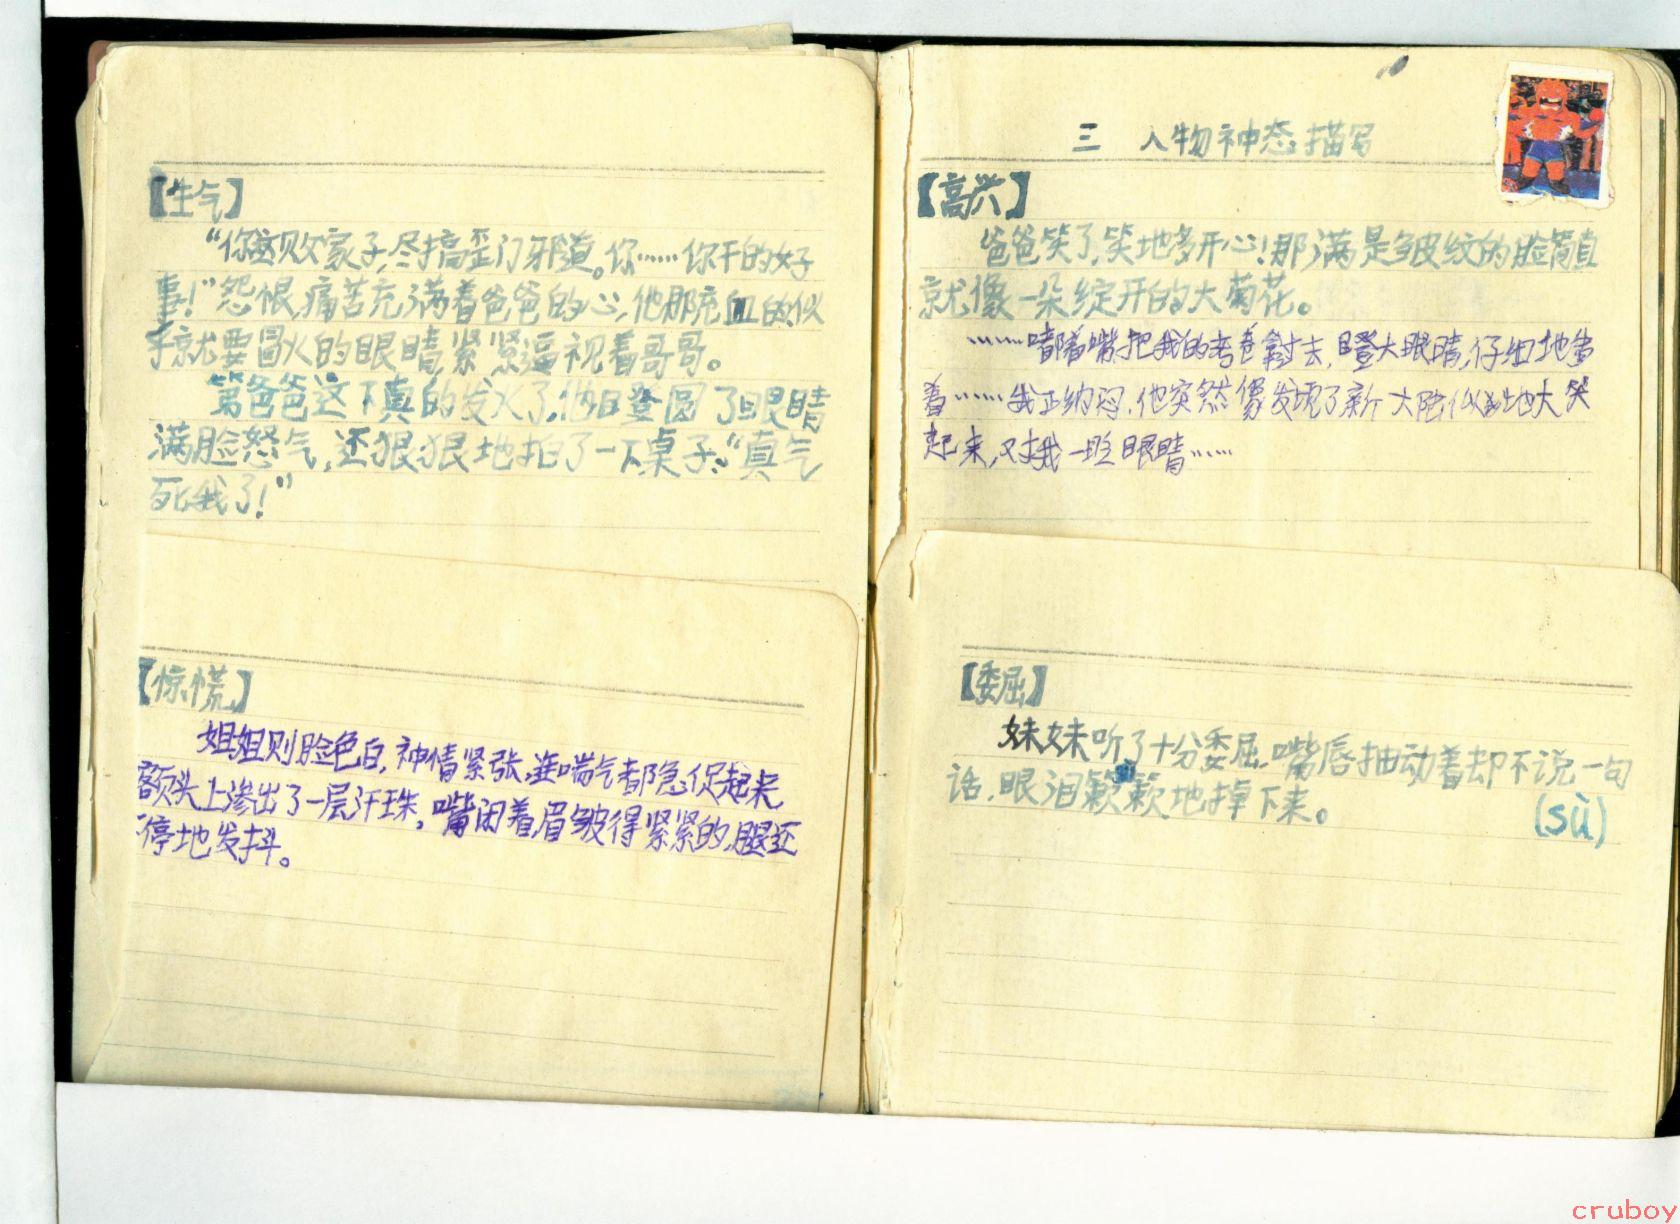 【生气】
“你这败家子，尽搞歪门邪道。你……你干的好
事！”怨恨，痛苦充满着爸爸的心，他那充血的似
乎就要冒火的眼睛紧紧逼视着哥哥。
爸爸这下真的发火了，他瞪圆了眼睛
满脸怒气，还狠狠地拍了一下桌子：“真气
死我了！”
【惊慌】
姐姐则脸色白，神情紧张，连喘气都急促起来
额头上渗出了一层汗珠，嘴闭着眉皱得紧紧的，腿还
停地发抖。
三 人物神态描写
【高兴】
爸爸笑了，笑地多开心！那满是皱纹的脸简直
就像一朵绽开的大菊花。
……着嘴把我的考卷拿过去，瞪大眼睛，仔细地看
着……我正纳闷，他突然像发现了新大陆似地大笑
起来，对我一眨眼睛……
【委屈】
妹妹听了十分委屈，嘴唇抽动着却不说一句
话，眼泪簌簌地掉下来。
(sù)
cruboy